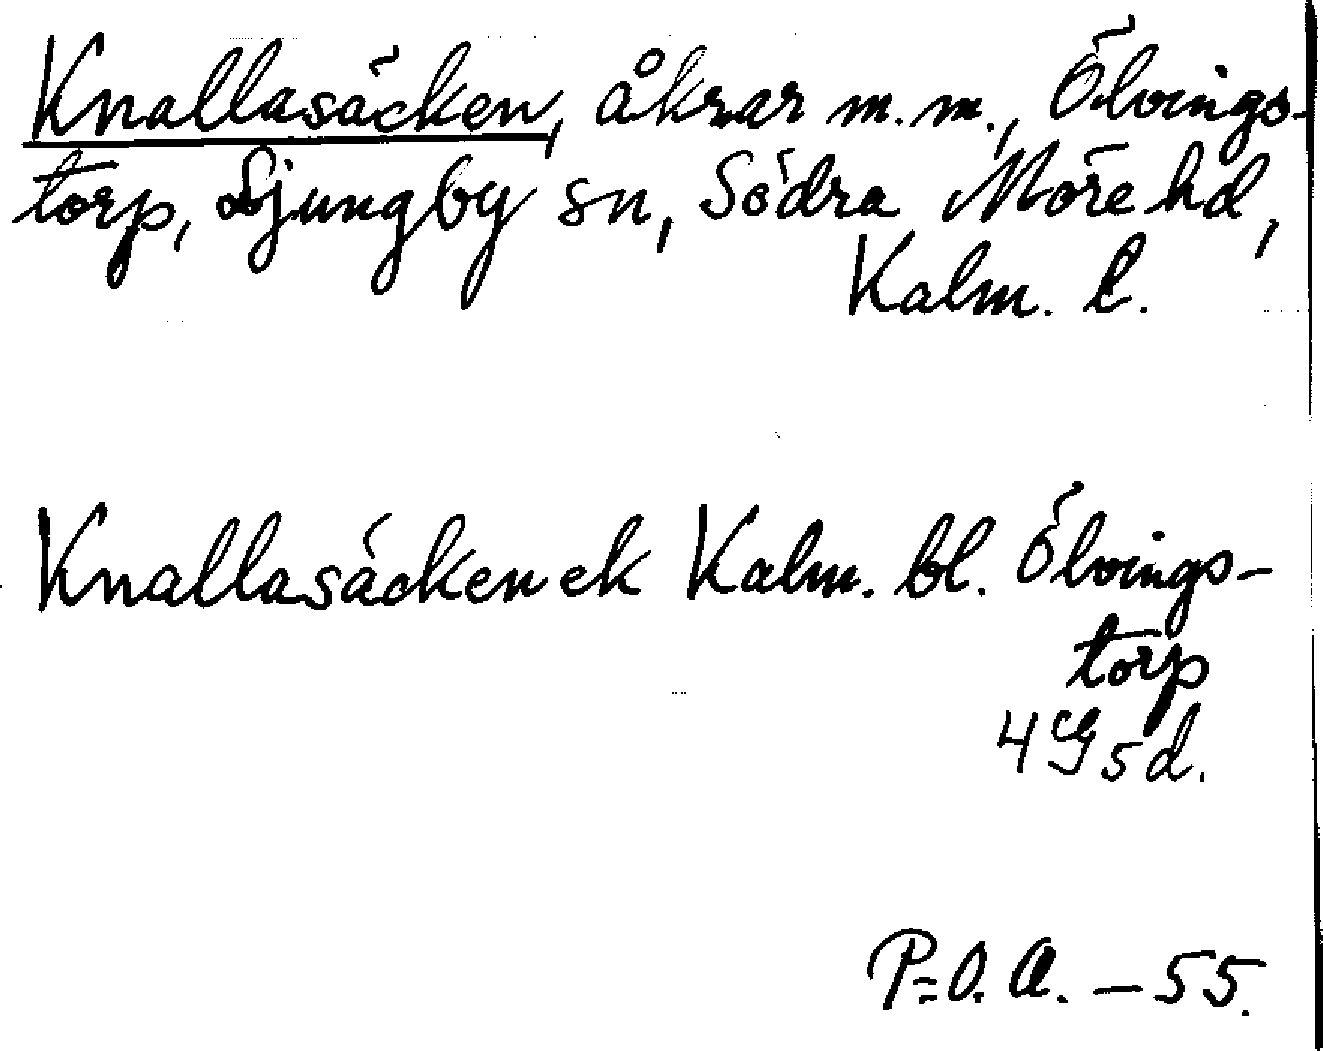 Knallasäcken, åkrar m.m., Ölvings-
torp, Ljungby sn, Södra Möre hd,
Kalm. l.
Knallasäcken ek Kalm. bl. Ölvings-
torp
4 G 5 d.
P=O. A. – 55.